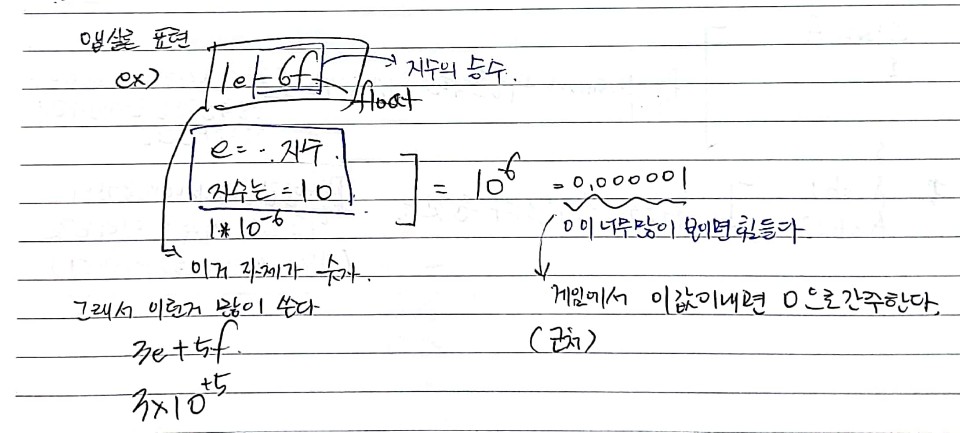 앱실론 표현
ex) 1e-6f → 지수의 승수.
float
e = 지수.
지수는 = 10
1*10^-6
= 10^-6 = 0.000001
0이 너무많이 보이면 힘들다.
이거 자체가 숫자.
게임에서 이값이내면 0으로간주한다.
(근처)
그래서 이런거 많이 쓴다
3e+5f.
3×10^+5